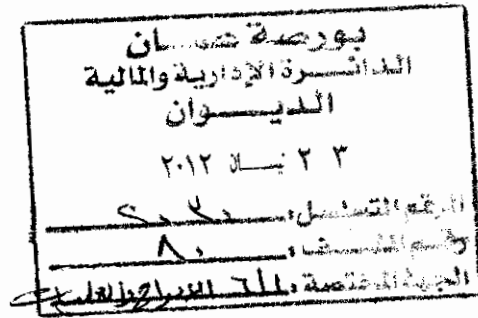 بورصة عمـــان
الدائــرة الإدارية والمالية
الديـــوان
٢٣ نيســان ٢٠١٢
الرقم التسلسل:
رقم الملف: ٨٠
الجهة المختصة: الادراج